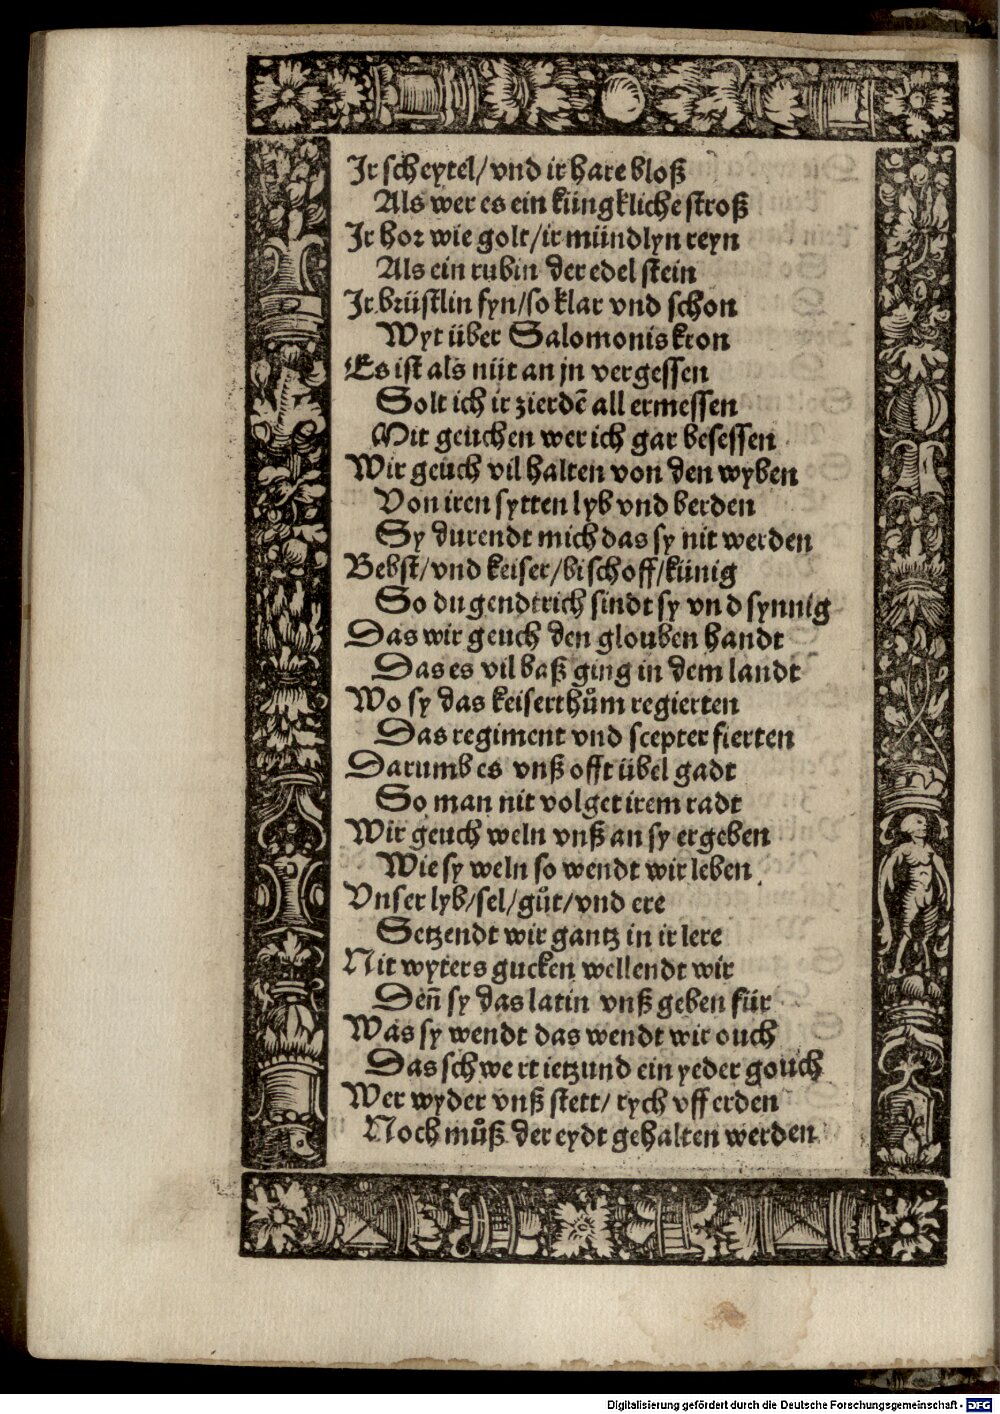 Ir scheytel/ vnd ir hare bloß
Als wer es ein küngkliche stroß
Ir hor wie golt/ir mündlyn reyn
Als ein rubin der edel stein
Ir brüstlin fyn/so klar vnd schon
Wyt über Salomonis kron
Es ist als nüt an jn vergessen
Solt ich ir zierdē all ermessen
Mit geuchen wer ich gar besessen
Wir geuch vil halten von den wyben
Von iren sytten lyb vnd berden
Sy durendt mich das sy nit werden
Bebst/vnd keiser/bischoff/künig
So dugendtrich sindt sy vnd synnig
Das wir geuch den glouben handt
Das es vil baß ging in dem landt
Wo sy das keiserthům regierten
Das regiment vnd scepter fierten
Darumb es vnß offt übel gadt
So man nit volget irem radt
Wir geuch weln vnß an sy ergeben
Wie sy weln so wendt wir leben
Vnser lyb/sel/gůt/vnd ere
Setzendt wir gantz in ir lere
Nit wyters gucken wellendt wir
Deñ sy das latin vnß geben für
Was sy wendt das wendt wir ouch
Das schwert ietzund ein yeder gouch
Wer wyder vnß stett/ rych vff erden
Noch můß der eydt gehalten werden
Digitalisierung gefördert durch die Deutsche Forschungsgemeinschaft - DFG